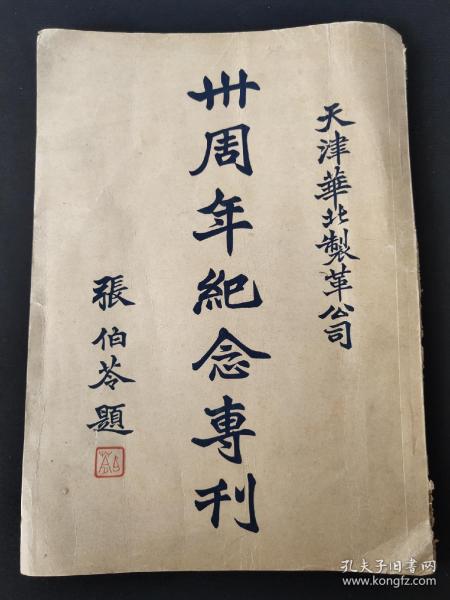 天津華北製革公司
卅周年紀念專刊
張伯苓題
孔夫子旧书网
www.kongfz.com